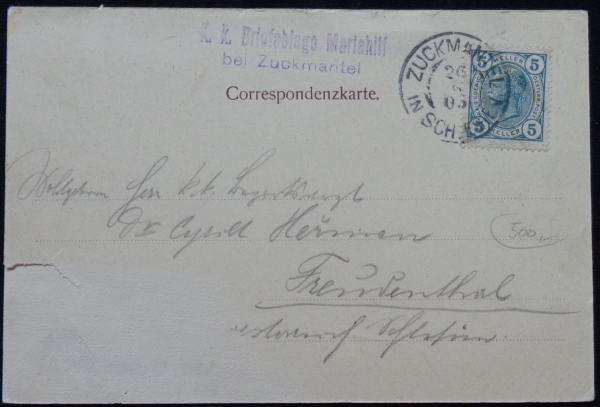 K. k. Briefablage Mariahilf
bei Zuckmantel
Correspondenzkarte.
ZUCKMANTEL
26
03
IN SCHL
5 HELLER 5
5 HELLER 5
Wohlgeboren Herr k.k. Bezirksarzt
Dr Cyrill Hermann
Freudenthal
österreich Schlesien.
500,-